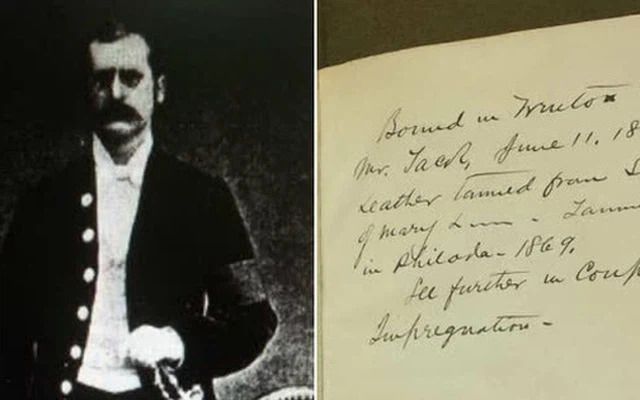 Bound in Trento
Mr. Jacob, June 11. 18
Leather tanned from S
of Mary L - Tanne
in Philada - 1869.
See further in Coup
Impregnation -